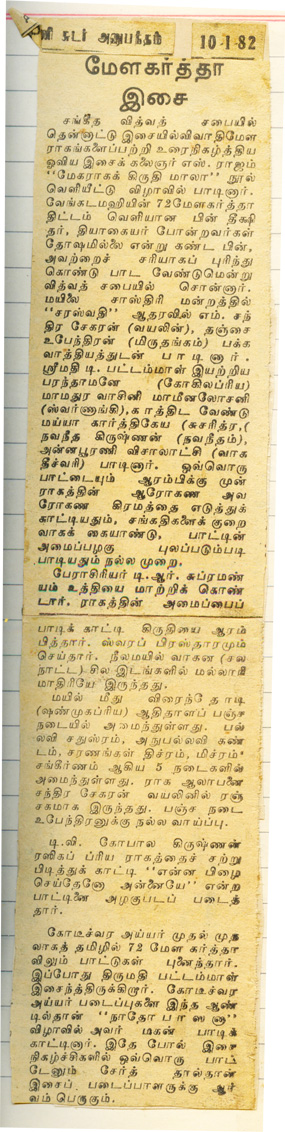 னி சுடர் அனுபந்தம்
10-1-82
மேளகர்த்தா
இசை
சங்கீத வித்வத் சபையில்
தென்னாட்டு இசையில்விவாதிமேள
ராகங்களைப்பற்றி உரைநிகழ்த்திய
ஓவிய இசைக் கலைஞர் எஸ். ராஜம்
"மேகராகக் கிருதி மாலா" நூல்
வெளியீட்டு விழாவில் பாடினார்.
வேங்கடமஹியின் 72மேளகர்த்தா
திட்டம் வெளியான பின் தீக்ஷி
தர், தியாகையர் போன்றவர்கள்
தோஷமில்லை என்று கண்ட பின்,
அவற்றைச் சரியாகப் புரிந்து
கொண்டு பாட வேண்டுமென்று
வித்வத் சபையில் சொன்னார்.
மயிலை சாஸ்திரி மன்றத்தில்
"சரஸ்வதி" ஆதரவில் எம். சந்
திர சேகரன் (வயலின்), தஞ்சை
உபேந்திரன் (மிருதங்கம்) பக்க
வாத்தியத்துடன் பாடினார்.
ஸ்ரீமதி டி. பட்டம்மாள் இயற்றிய
பரந்தாமனே (கோகிலப்ரிய)
மாமதுர வாசினி மாமீனலோசனி
(ஸ்வர்ணாங்கி),காத்திட வேண்டு
மய்யா கார்த்திகேய (சுசரித்ர,(
நவநீத கிருஷ்ணன் (நவநீதம்),
அன்னபூரணி விசாலாட்சி (வாக
தீச்வரி) பாடினார். ஒவ்வொரு
பாட்டையும் ஆரம்பிக்கு முன்
ராகத்தின் ஆரோகண அவ
ரோகண கிரமத்தை எடுத்துக்
காட்டியதும், சங்கதிகளைக் குறை
வாகக் கையாண்டு, பாட்டின்
அமைப்பழகு புலப்படும்படி
பாடியதும் நல்ல முறை.
பேராசிரியர் டி.ஆர். சுப்ரமண்
யம் உத்தியை மாற்றிக் கொண்
டார். ராகத்தின் அமைப்பைப்
பாடிக் காட்டி கிருதியை ஆரம்
பித்தார். ஸ்வரப் பிரஸ்தாரமும்
செய்தார். நீலமயில் வாகன (சல
நாட்ட) சில இடங்களில் மல்லாரி
மாதிரியே இருந்தது.
மயில் மீது விரைந்தோடி
(ஷண்முகப்ரிய) ஆதிதாளப் பஞ்ச
நடையில் அமைந்துள்ளது. பல்
லவி சதுஸ்ரம், அநுபல்லவி கண்
டம், சரணங்கள் திச்ரம், மிச்ரம்
சங்கீர்ணம் ஆகிய 5 நடைகளில்
அமைந்துள்ளது. ராக ஆலாபனை
சந்திர சேகரன் வயலினில் ரஞ்
சகமாக இருந்தது. பஞ்ச நடை
உபேந்திரனுக்கு நல்ல வாய்ப்பு.
டி.வி. கோபால கிருஷ்ணன்
ரஸிகப் ப்ரிய ராகத்தைச் சற்று
பிடித்துக் காட்டி "என்ன பிழை
செய்தேனோ அன்னையே" என்ற
பாட்டினை அழகுபடப் படைத்
தார்.
கோடீச்வர அய்யர் முதல் முத
வாகத் தமிழில் 72 மேள கர்த்தா
விலும் பாட்டுகள் புனைந்தார்.
இப்போது திருமதி பட்டம்மாள்
இசைந்திருக்கிறார். கோடீச்வர
அய்யர் படைப்புகளை இந்த ஆண்
டில்தான் "நாதோபாஸனா"
விழாவில் அவர் மகன் பாடிக்
காட்டினார். இதே போல் இசை
நிகழ்ச்சிகளில் ஒவ்வொரு பாட்
டேனும் சேர்த் தால்தான்
இசைப் படைப்பாளருக்கு ஆர்
வம் பெருகும்.